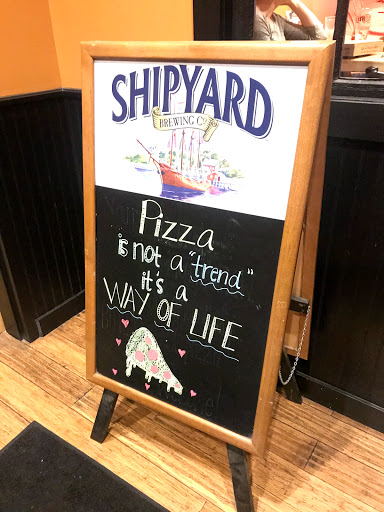 SHIPYARD
BREWING CO
Pizza
is not a "trend"
it's a
WAY OF LIFE